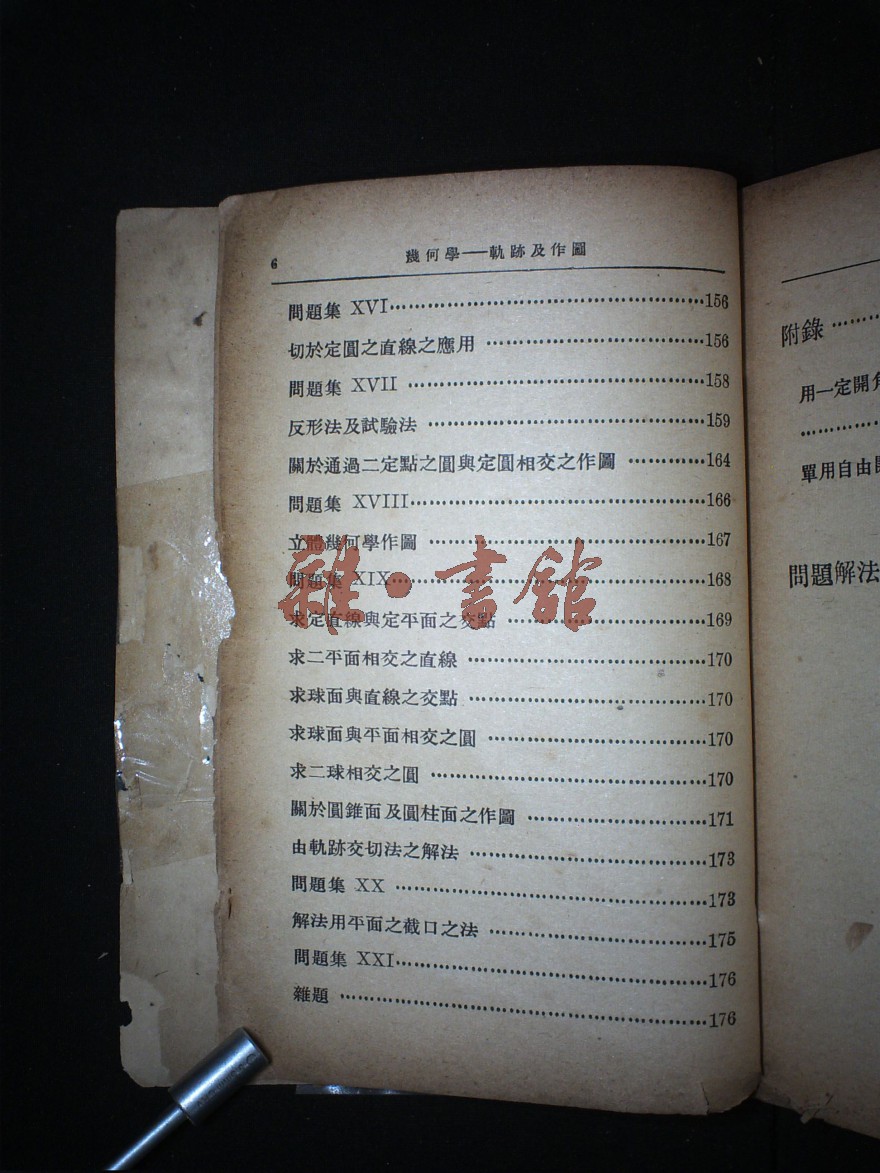 6
幾何學——軌跡及作圖
問題集 XVI……………………………156
切於定圓之直線之應用 ……………………156
問題集 XVII ……………………………158
反形法及試驗法 ……………………………159
關於通過二定點之圓與定圓相交之作圖 …………164
問題集 XVIII……………………………166
立體幾何學作圖 ……………………………167
問題集 XIX……………………………168
求定直線與定平面之交點 ……………………169
求二平面相交之直線 ……………………170
求球面與直線之交點 ……………………170
求球面與平面相交之圓 ……………………170
求二球相交之圓 ……………………………170
關於圓錐面及圓柱面之作圖 ……………………171
由軌跡交切法之解法 ……………………173
問題集 XX ……………………………173
解法用平面之截口之法 ……………………175
問題集 XXI……………………………176
雜題 ……………………………………176
雜·書館
附錄 ………
用一定開角
………
單用自由
問題解法